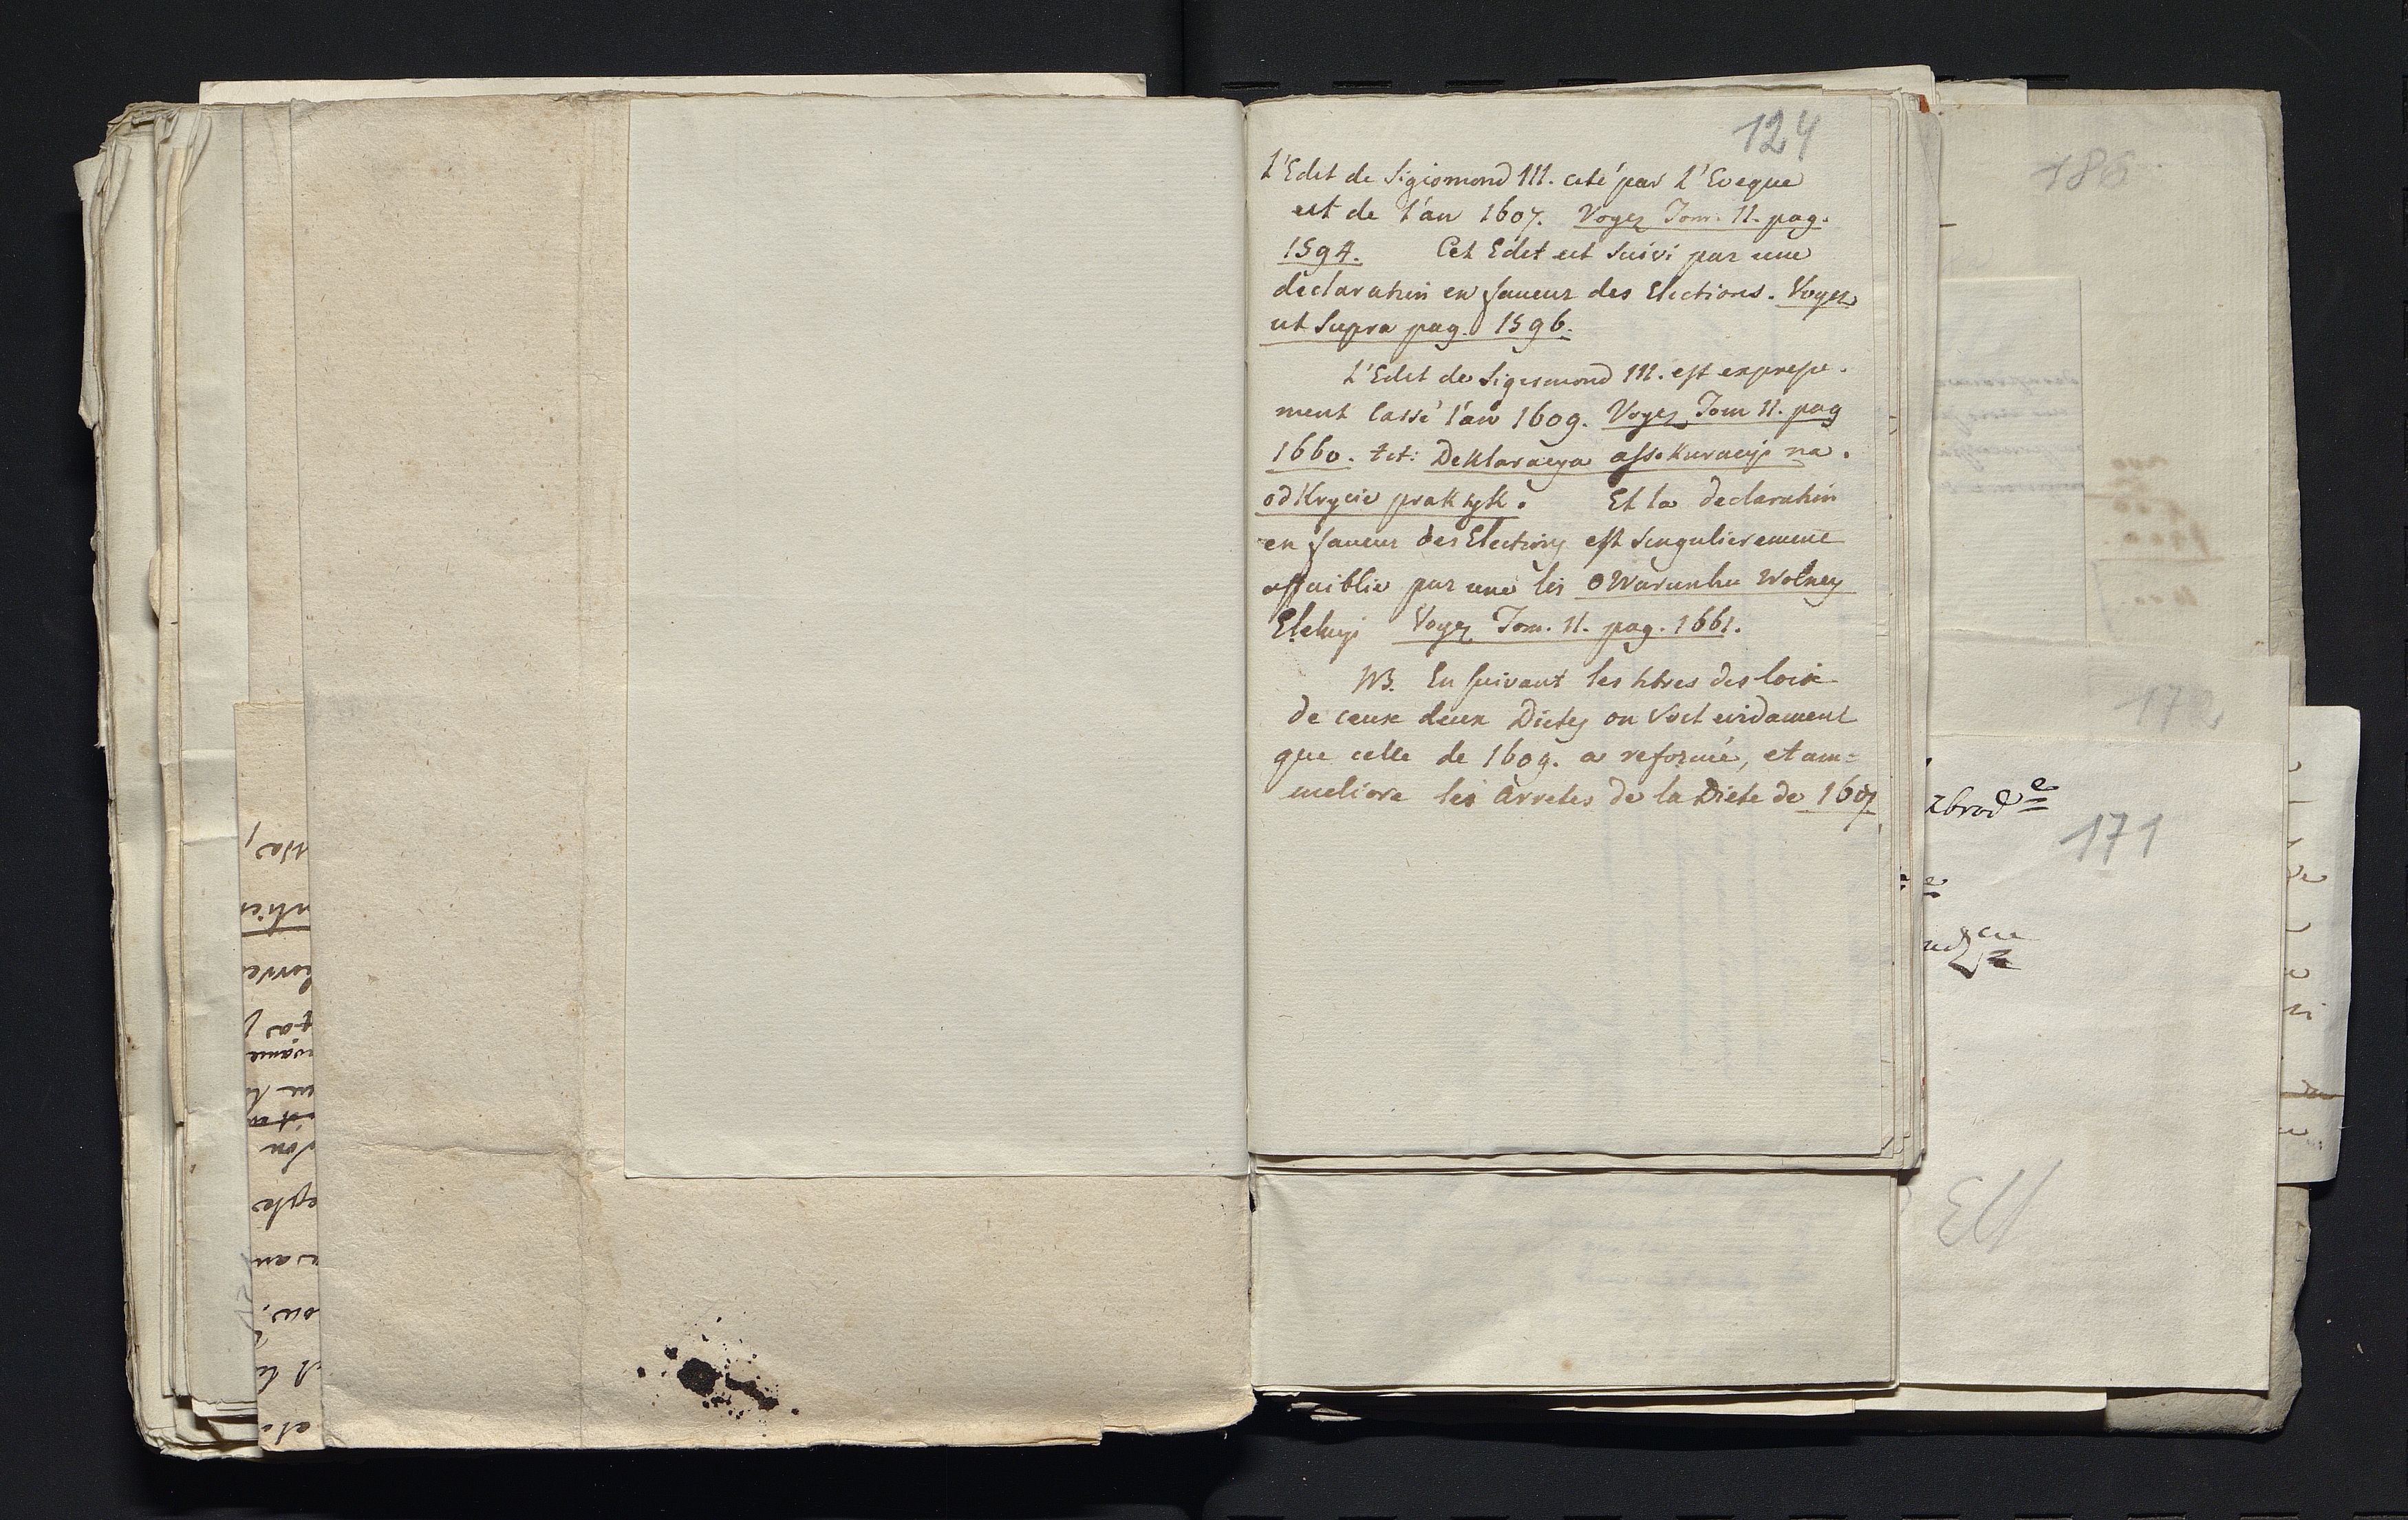 124
L'Edit de Sigismond III. cité par L'Eveque
est de l'an 1607. Voyez Tom. II. pag.
1594. Cet Edit est suivi par une
declaration en faveur des Elections. Voyez
ut supra pag. 1596.
L'Edit de Sigismond III. est expresse-
ment cassé l'an 1609. Voyez Tom II. pag
1660. tit: Deklaracya assekuracyi na
odkrycie praktyk. Et la declaration
en faveur des Elections est singulierement
affaiblie par une loi O Warunku Wolney
Elekcyi Voyez Tom. II. pag. 1661.
NB. En suivant les titres des loix
de ceux deux Dietes on voit evidament
que celle de 1609. a reformé, et am=
meliore les arretes de la Diete de 1607
186
172
171
113